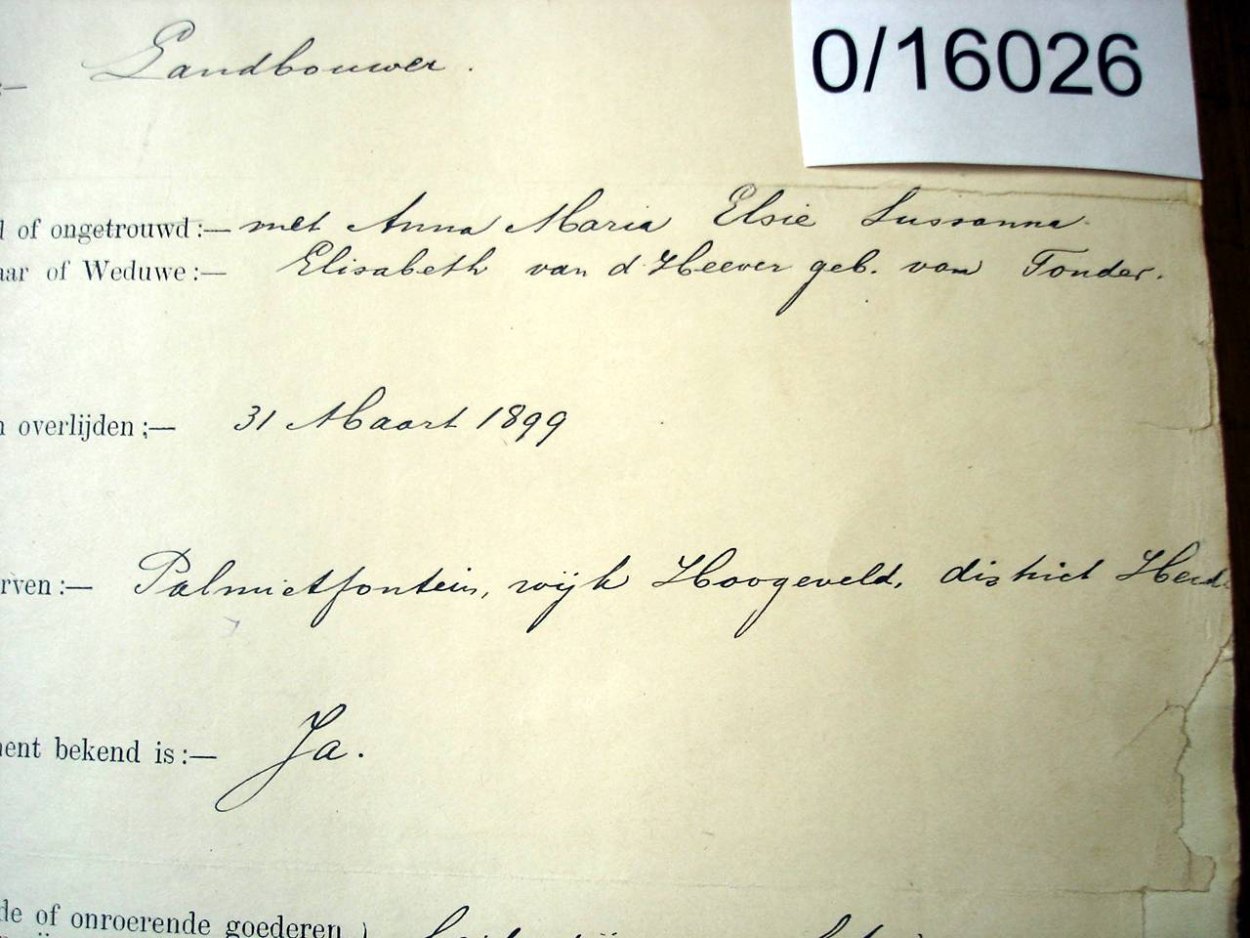 0/16026
:— Landbouwer.
d of ongetrouwd:— met Anna Maria Elsie Sussanna
aar of Weduwe:— Elisabeth van d Heever geb. van Tonder.
n overlijden;— 31 Maart 1899
rven:— Palmietfontein, wijk Hoogeveld, district Heid
ment bekend is:— Ja.
de of onroerende goederen